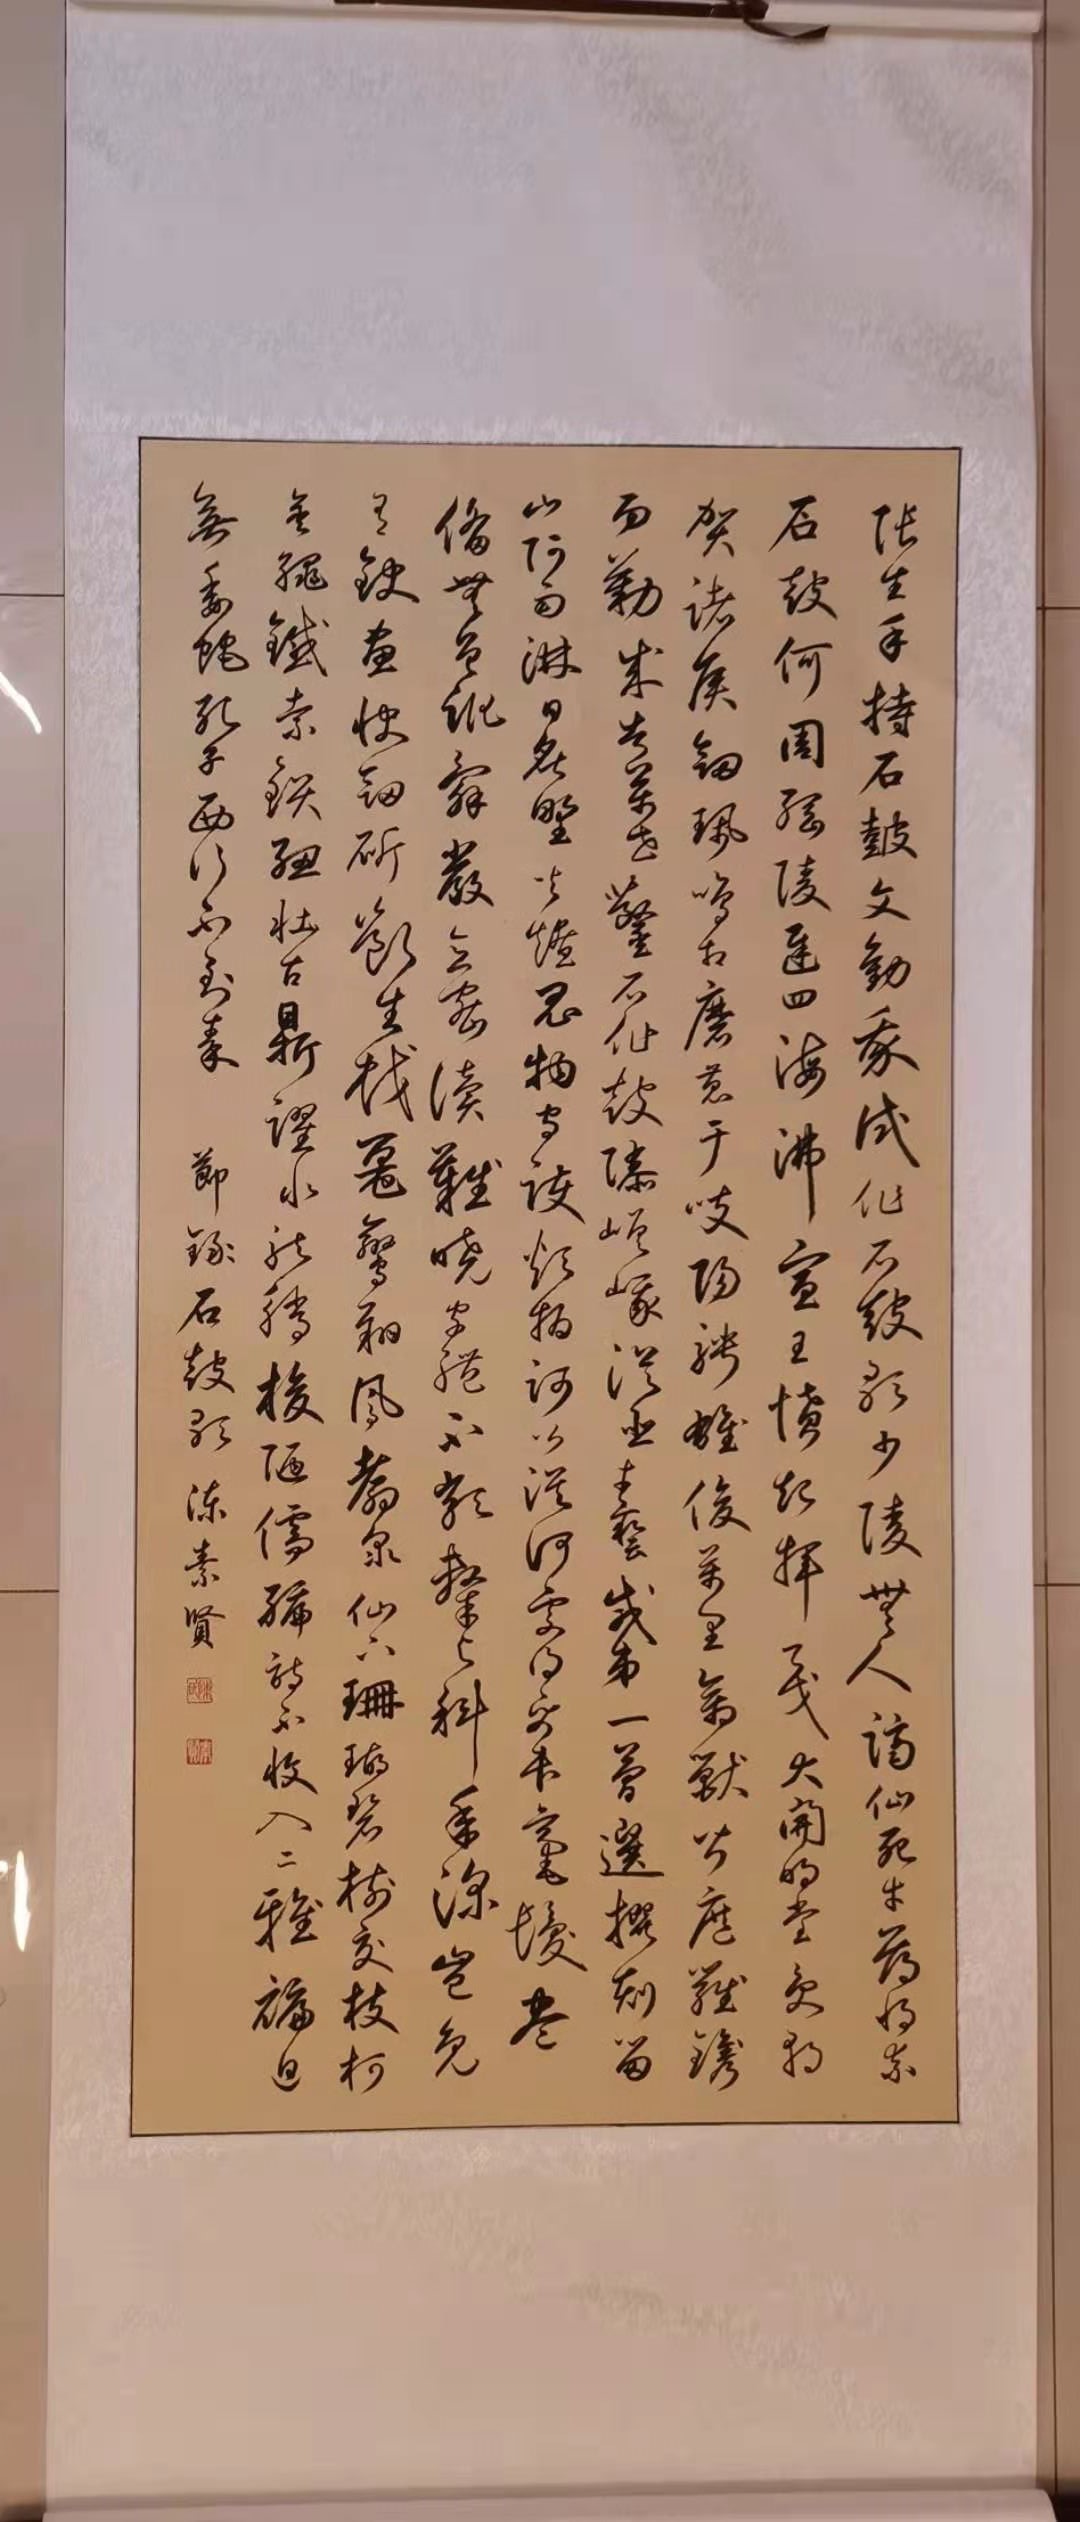 張生手持石鼓文勸我試作石鼓歌少陵無人謫仙死才薄將奈
石鼓何周綱陵遲四海沸宣王憤起揮戈大開明堂受朝
賀諸侯劍珮鳴相磨蒐于岐陽騁雄俊萬里禽獸皆遮羅鐫
功勒成告萬世鑿石作鼓隳嵯峨從臣才藝咸第一簡選撰刻留
山阿雨淋日炙野火燎鬼物守護煩撝訶公從何處得紙本毫髮盡
備無差訛辭嚴義密讀難曉字體不類隸與科年深豈免
有缺畫快劍斫斷生蛟鼉鸞翔鳳翥眾仙下珊瑚碧樹交枝柯
金繩鐵索鎖紐壯古鼎躍水龍騰梭陋儒編詩不收入二雅褊迫
無委蛇孔子西行不到秦 節錄石鼓歌 陳素賢